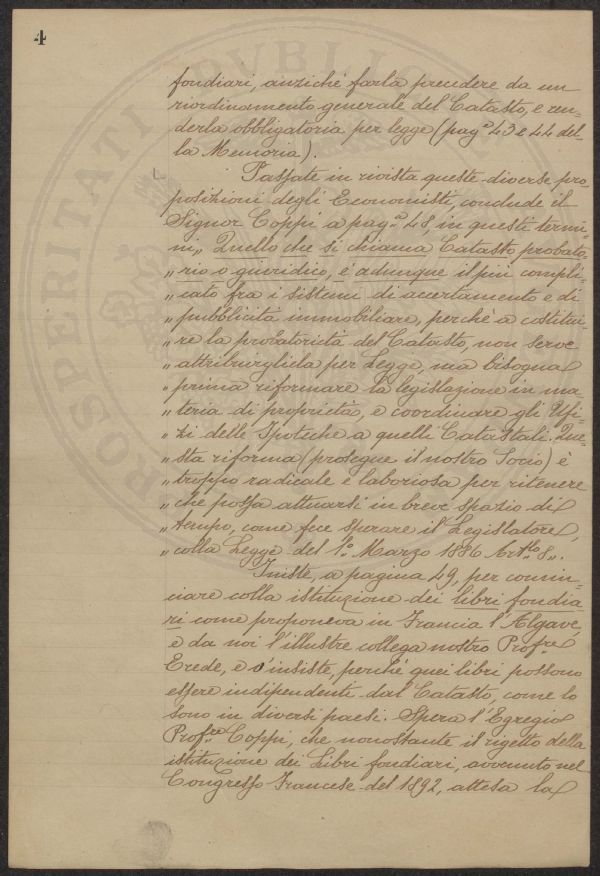 4
fondiari, anziché farla precedere da un
riordinamento generale del Catasto, e ren-
derla obbligatoria per legge (pag.e 43 e 44 del-
la Memoria).
Passate in rivista queste diverse pro-
posizioni degli Economisti, conclude il
Signor Coppi a pag.a 48, in questi termi-
ni „ Quello che si chiama Catasto probato-
„ rio o giuridico, è adunque il più compli-
„ cato fra i sistemi di accertamento e di
„ pubblicità immobiliare, perchè a costitui-
„ re la probatorietà del Catasto, non serve
„ attribuirgliela per Legge, ma bisogna
„ prima riformare la legislazione in ma-
„ teria di proprietà, e coordinare gli Uffi-
„ zi delle Ipoteche a quelli Catastali. Que-
„ sta riforma (prosegue il nostro Socio) è
„ troppo radicale e laboriosa per ritenere
„ che possa attuarsi in breve spazio di
„ tempo, come fece sperare il Legislatore,
„ colla Legge del 1.o Marzo 1886 Art.lo 8„.
Insiste, a pagina 49, per comin-
ciare colla istituzione dei libri fondia-
ri come proponeva in Francia l'Algave,
e da noi l'illustre collega nostro Prof.re
Erede, e v'insiste, perchè quei libri possono
essere indipendenti dal Catasto, come lo
sono in diversi paesi. Spera l'Egregio
Prof.re Coppi, che nonostante il rigetto della
istituzione dei Libri fondiari, avvenuto nel
Congresso Francese del 1892, attesa la
PUBLIC
PROSPERITATI